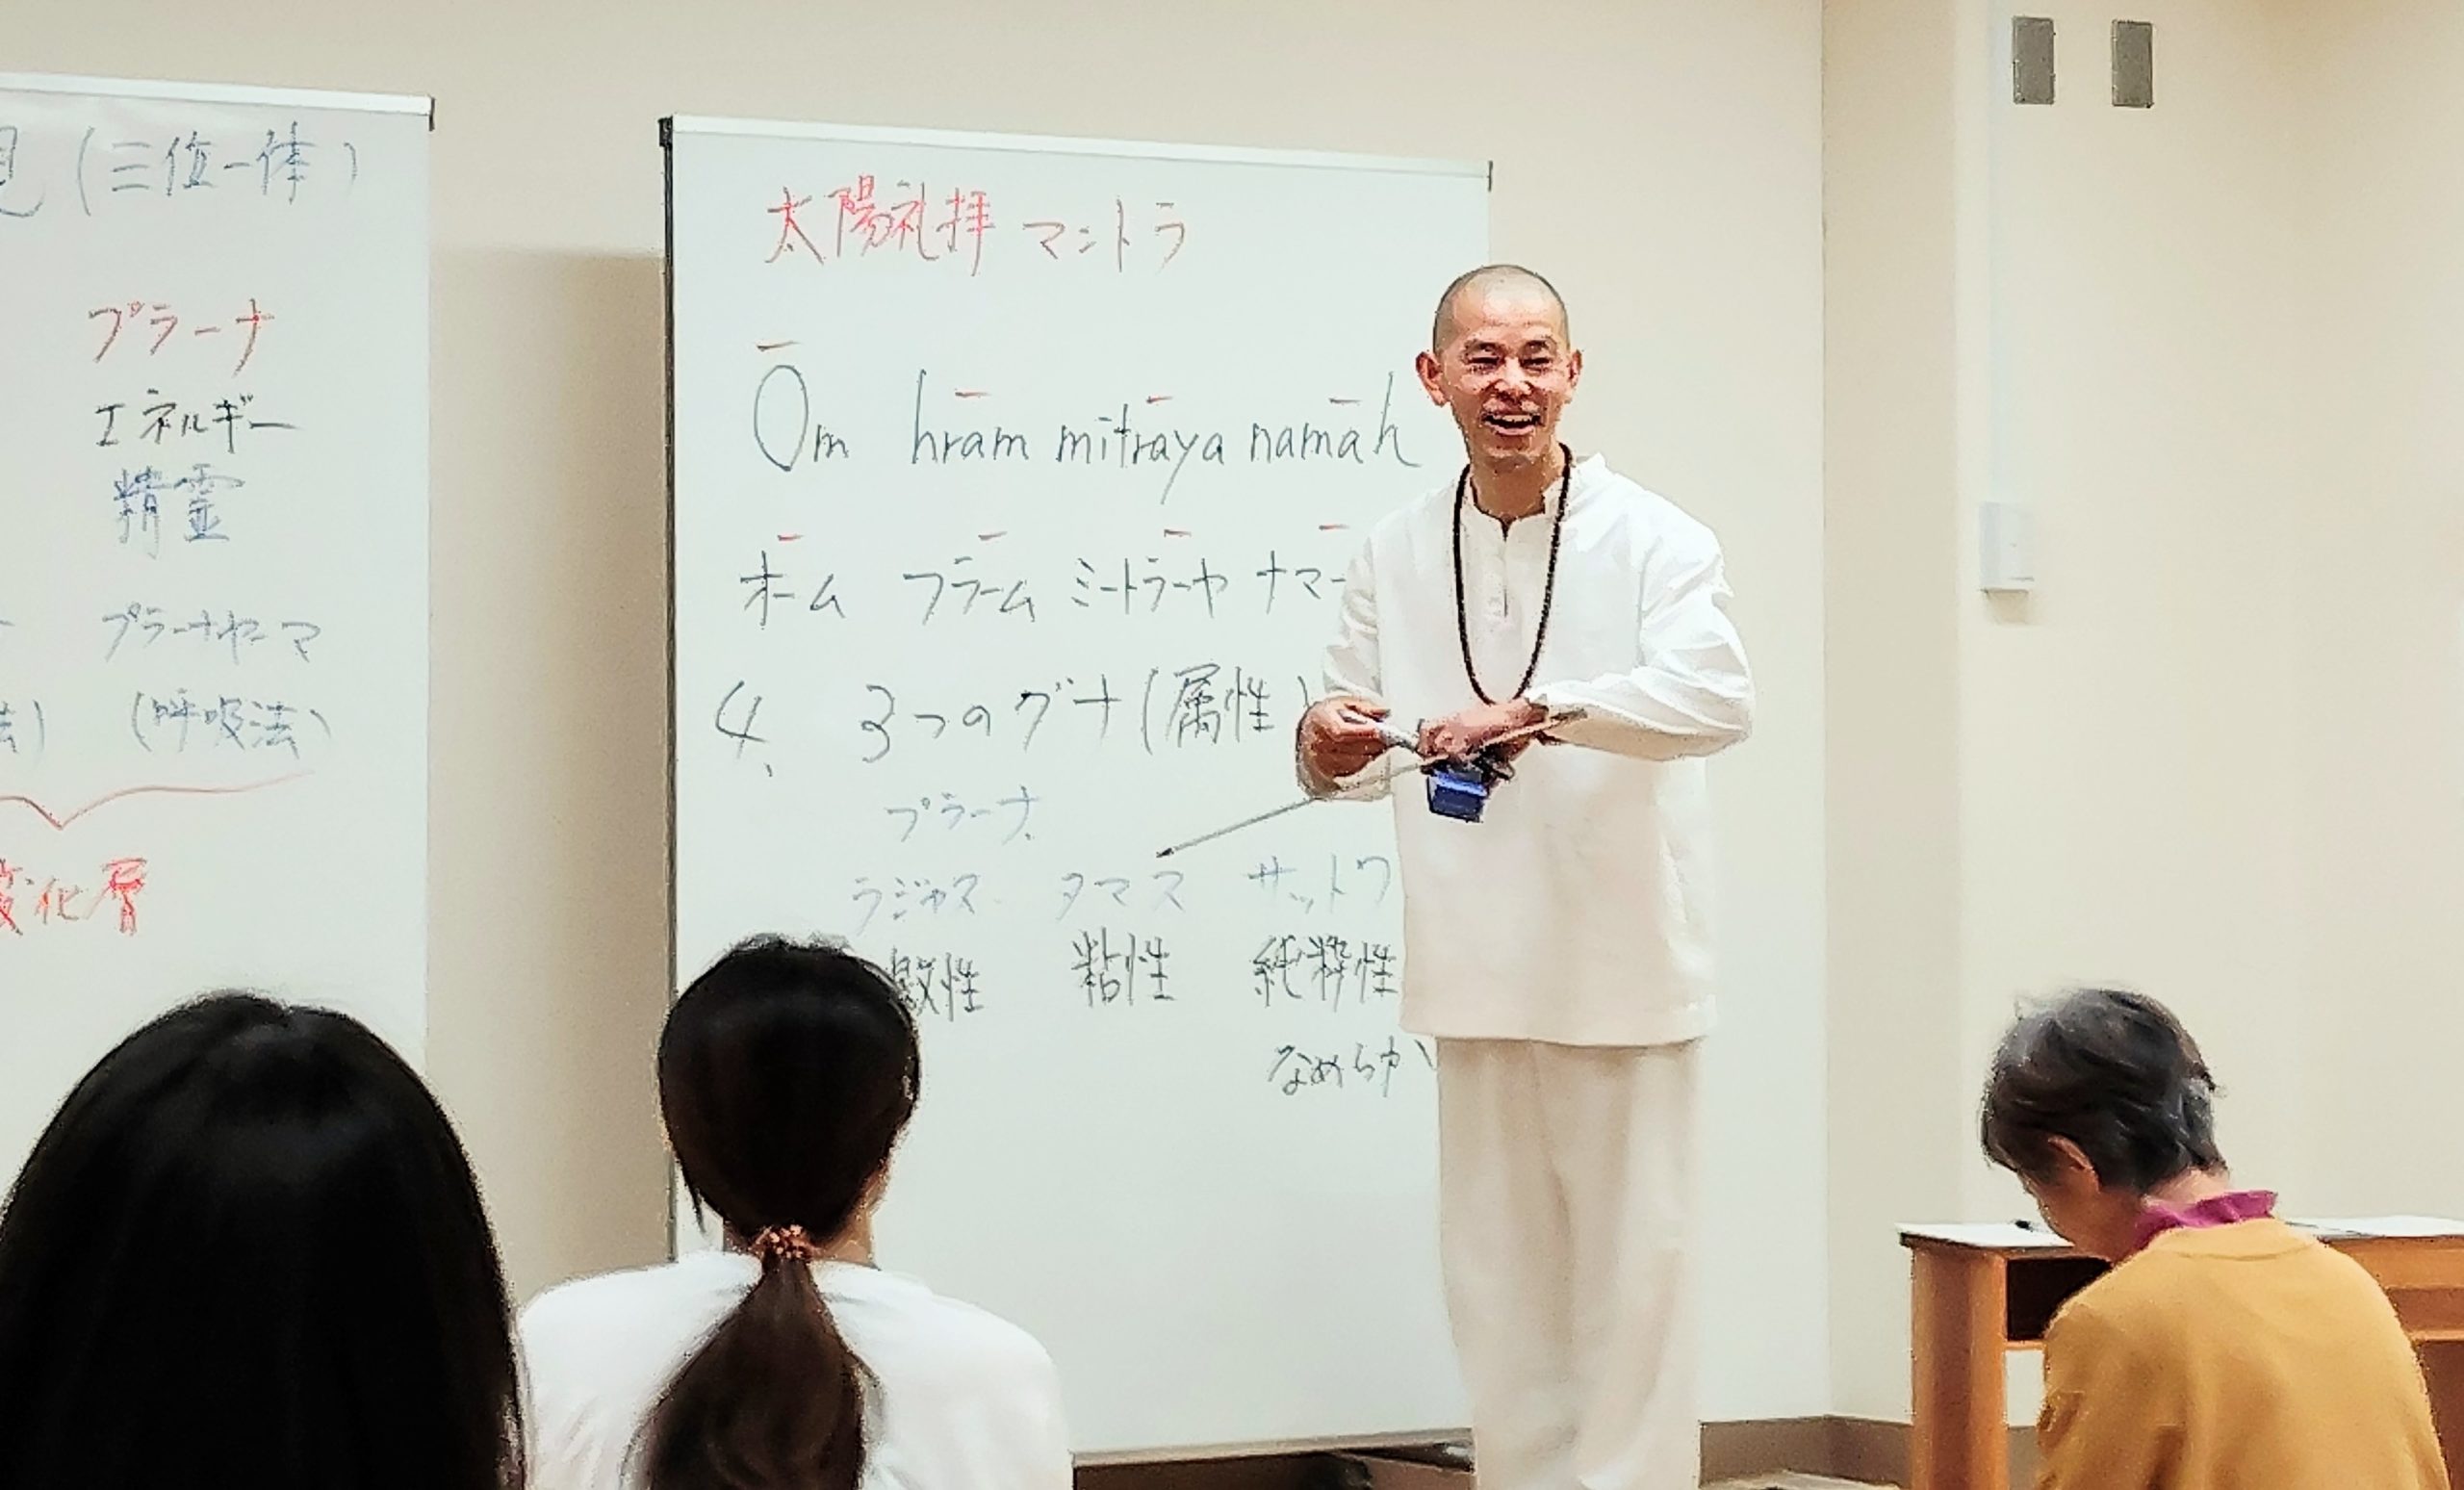 (三位一体)
プラーナ
エネルギー
精霊
プラーナヤーマ
(呼吸法)
変化層
太陽礼拝 マントラ
Om hram mitraya namah
オーム フラーム ミートラーヤ ナマー
4、 3つのグナ(属性)
プラーナ
ラジャス タマス サットワ
激性 粘性 純粋性
なめらか